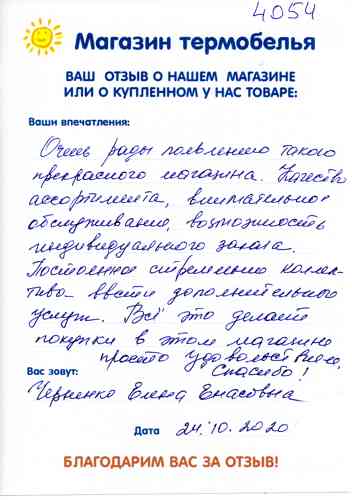 4054
Магазин термобелья
ВАШ ОТЗЫВ О НАШЕМ МАГАЗИНЕ
ИЛИ О КУПЛЕННОМ У НАС ТОВАРЕ:
Ваши впечатления:
Очень рады появлению такого
прекрасного магазина. Качество
ассортимента, внимательное
обслуживание, возможность
индивидуального заказа.
Постоянное стремление коллек-
тива ввести дополнительные
услуги. Всё это делает
покупки в этом магазине
просто удовольствием.
Спасибо!
Вас зовут:
Черненко Елена
Дата 24.10.2020
БЛАГОДАРИМ ВАС ЗА ОТЗЫВ!